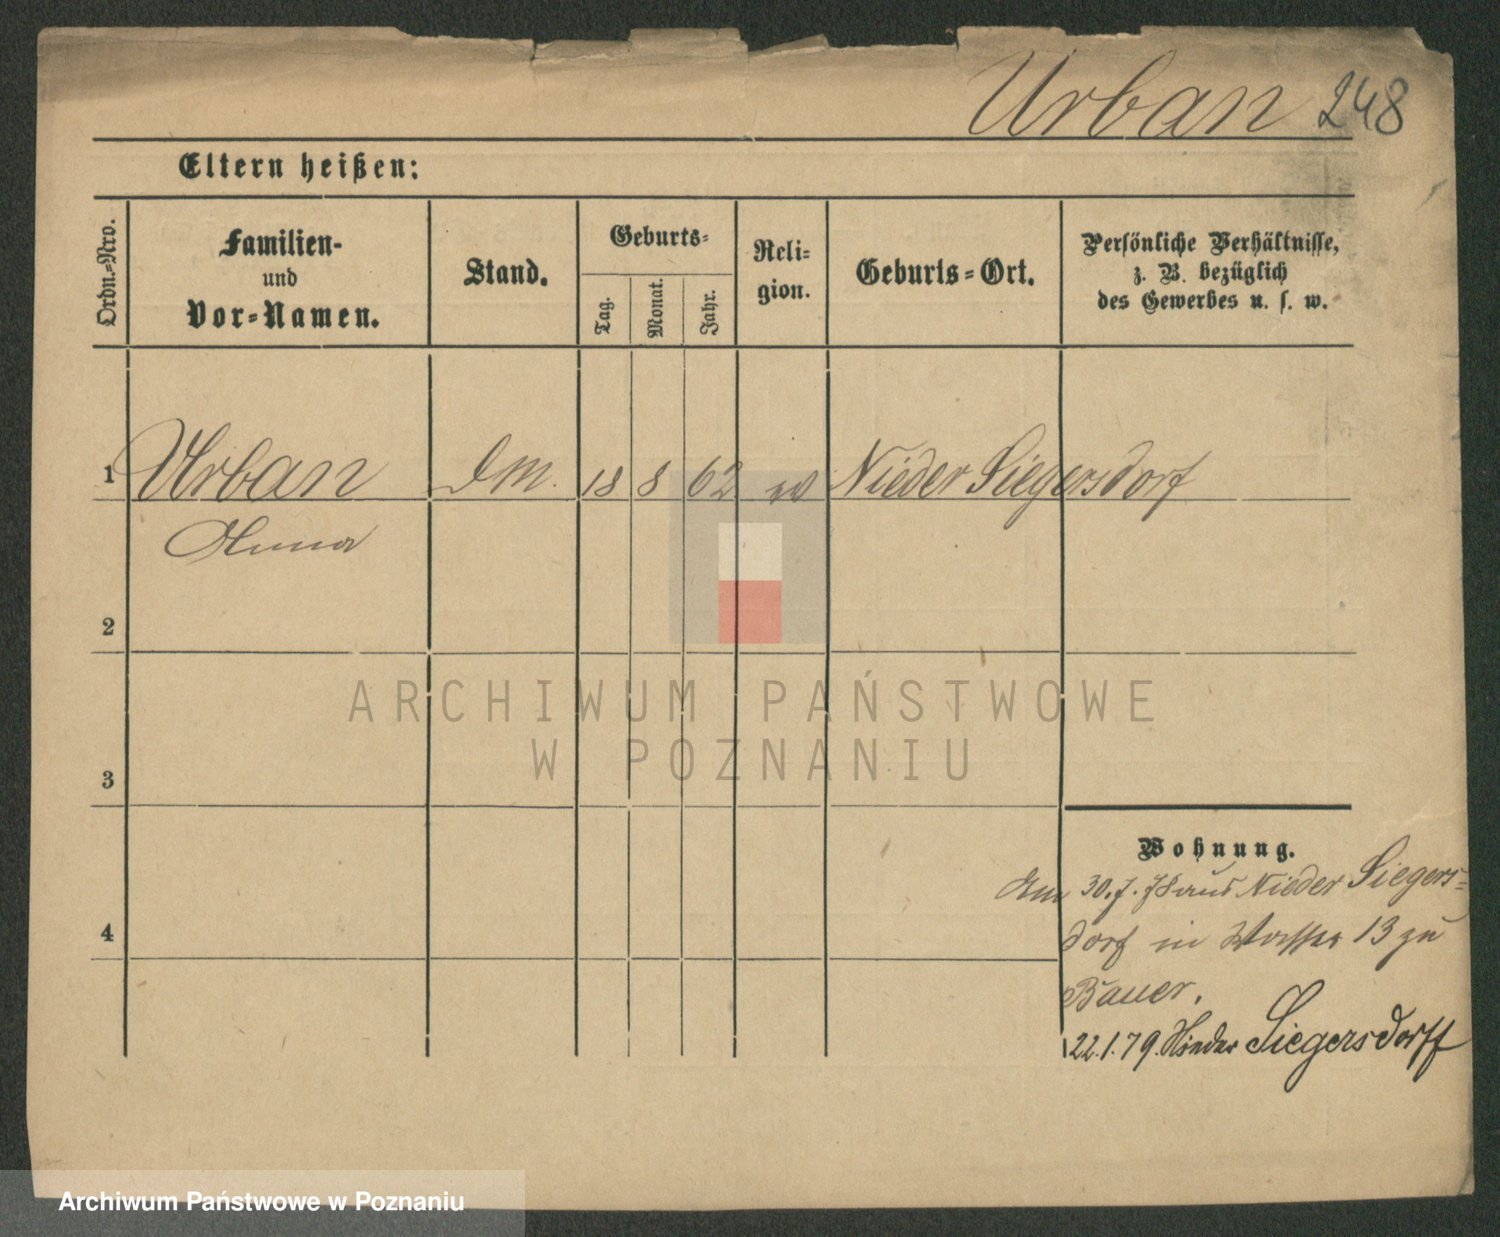 Urban 248
Eltern heißen:
Ordn.-Nro.
Familien-
und
Vor-Namen.
Stand.
Geburts-
Tag.
Monat.
Jahr.
Reli-
gion.
Geburts-Ort.
Persönliche Verhältnisse,
z. B. bezüglich
des Gewerbes u. s. w.
1 Urban DM. 18 8 62 Nieder Siegersdorf
Anna
2
3
4
ARCHIWUM PAŃSTWOWE
W POZNANIU
Wohnung.
Am 30.7.78 aus Nieder Siegers=
dorf in Wasser 13 zu
Bauer.
22.1.79. Nieder Siegersdorff
Archiwum Państwowe w Poznaniu